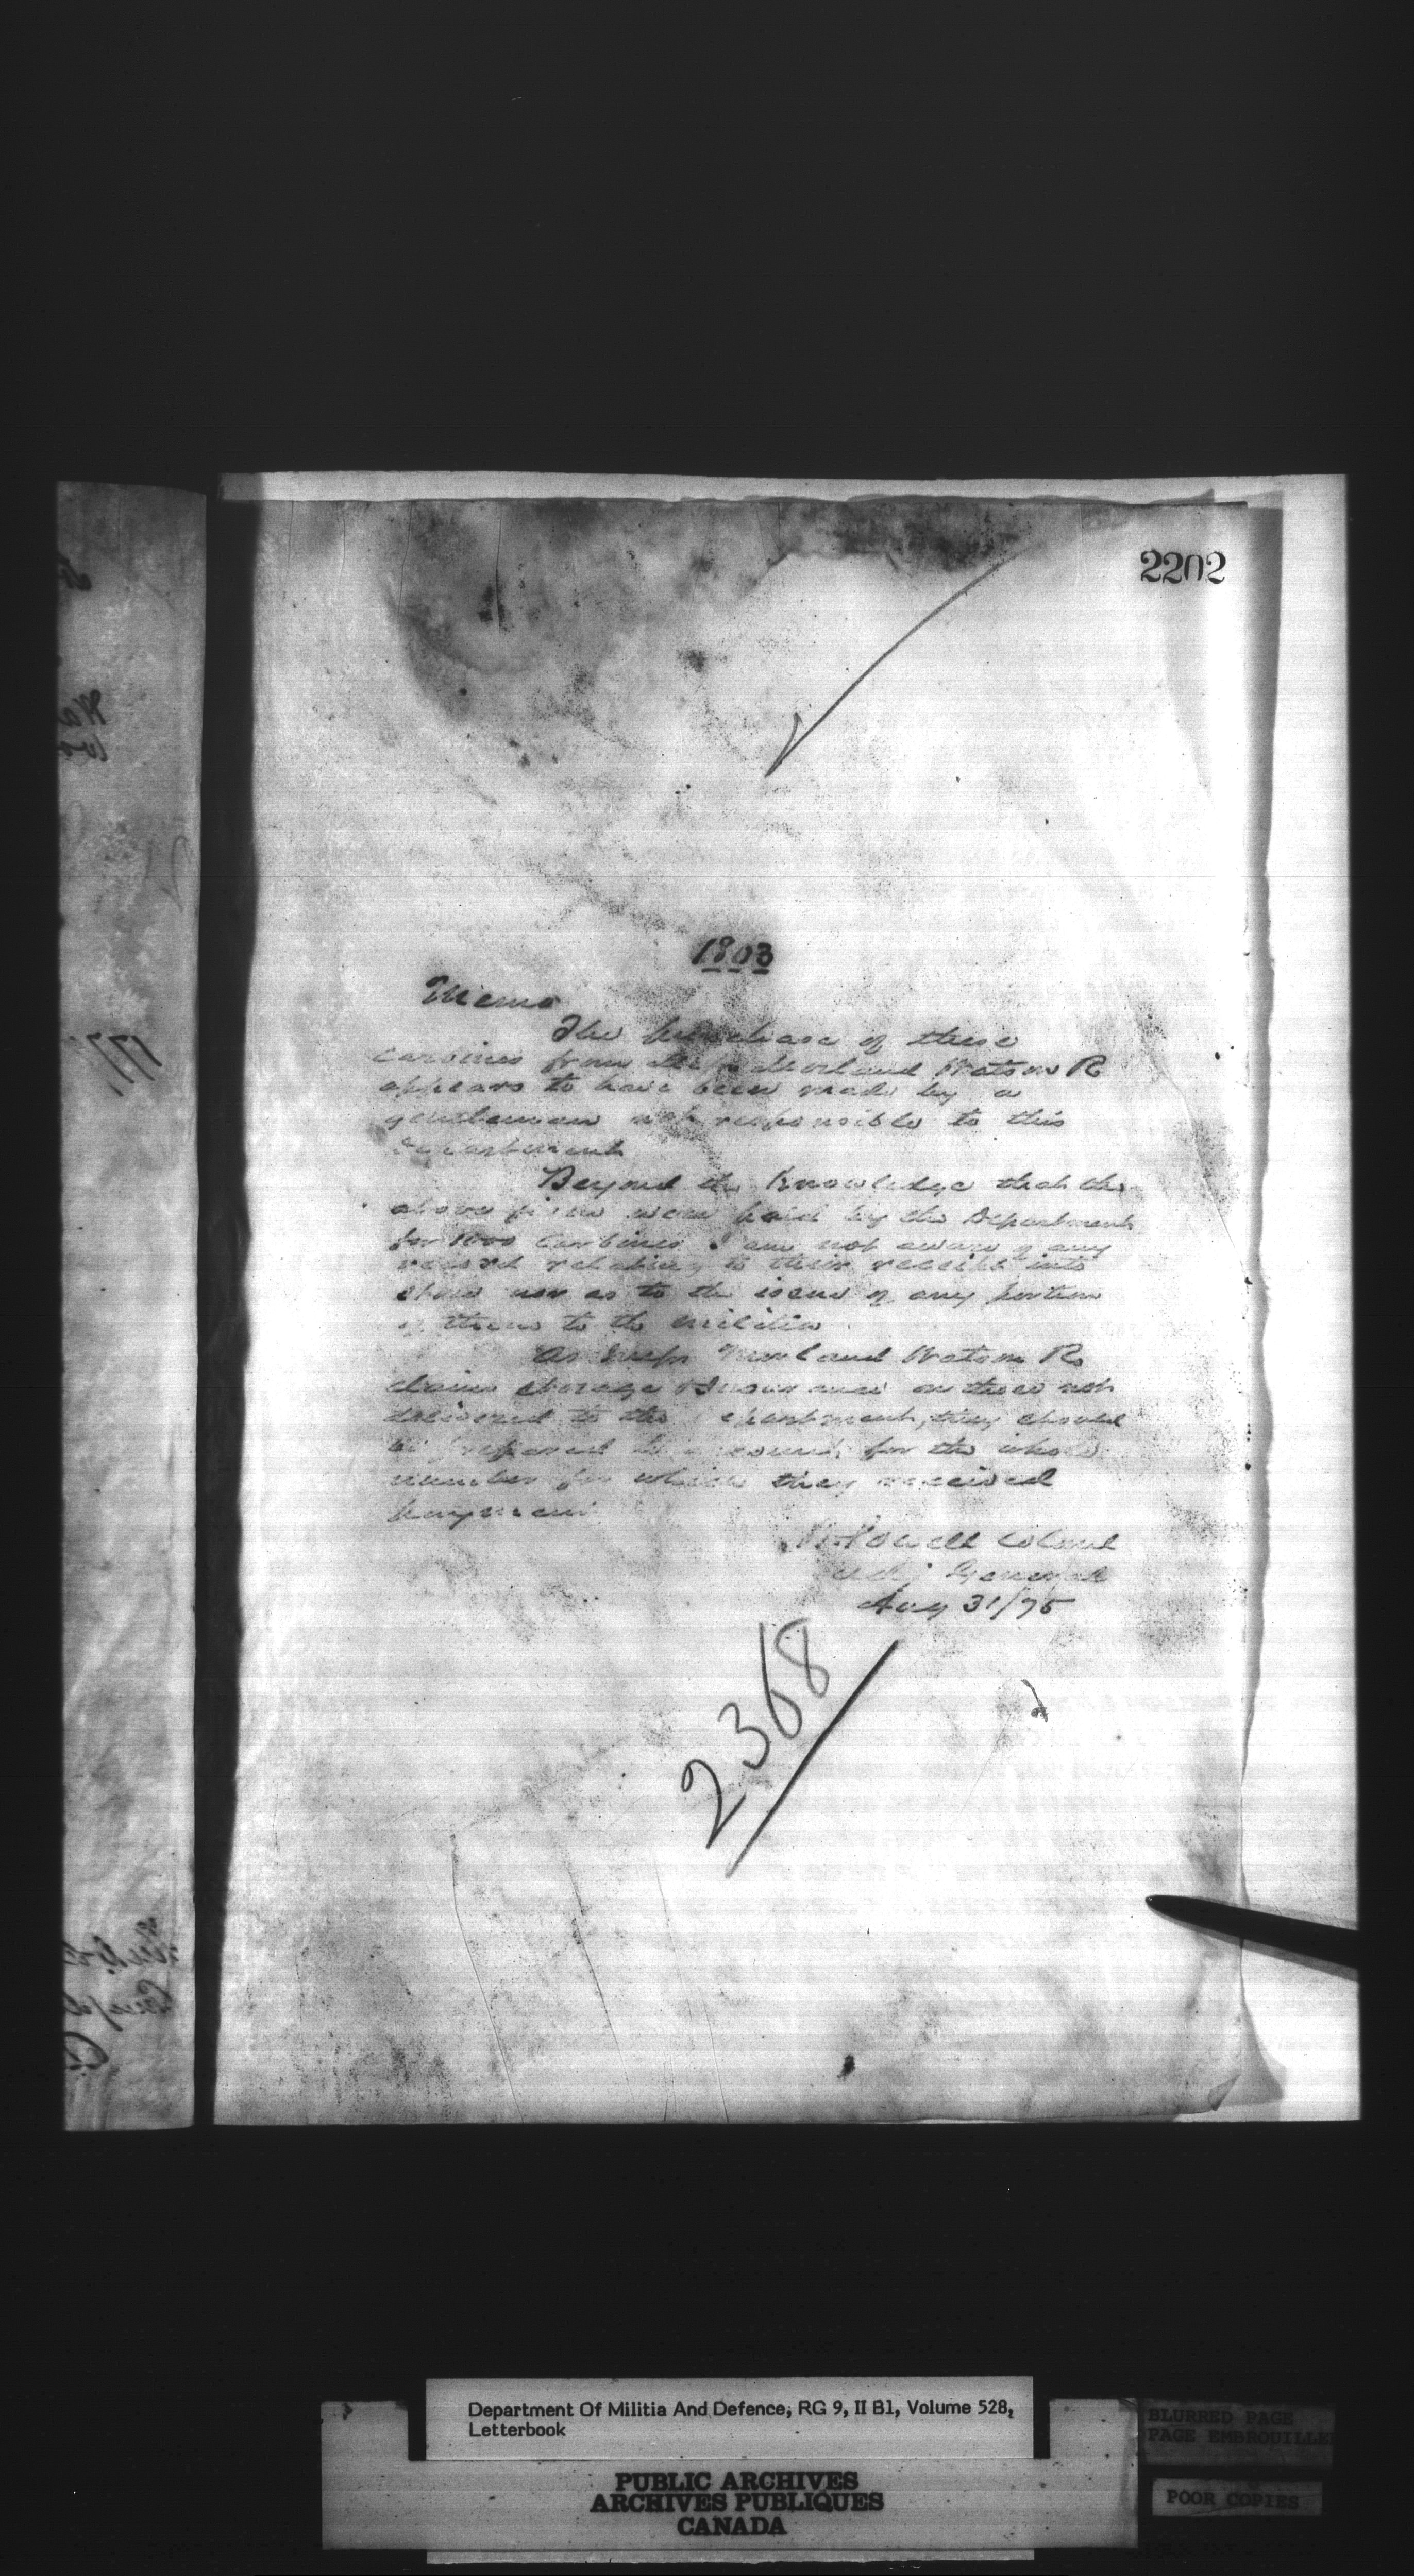 2202
1803
Memo
The purchase of these
carbines from Messrs Morland Watson &
appears to have been made by a
gentleman not responsible to this
Department
Beyond the Knowledge that the
above were paid by the Department
for 1000 Carbines I am not aware of any
record relating to their receipt into
store nor as to the issue of any portion
of them to the militia
As Messrs Morland Watson &
claim storage & Insurance on those not
delivered to the Department, they should
be prepared to account for the whole
number for which they received
payment
W Powell Colonel
Adj General
Aug 31/75
2368
Department Of Militia And Defence, RG 9, II B1, Volume 528,
Letterbook
BLURRED PAGE
PAGE EMBROUILLE
PUBLIC ARCHIVES
ARCHIVES PUBLIQUES
CANADA
POOR COPIES